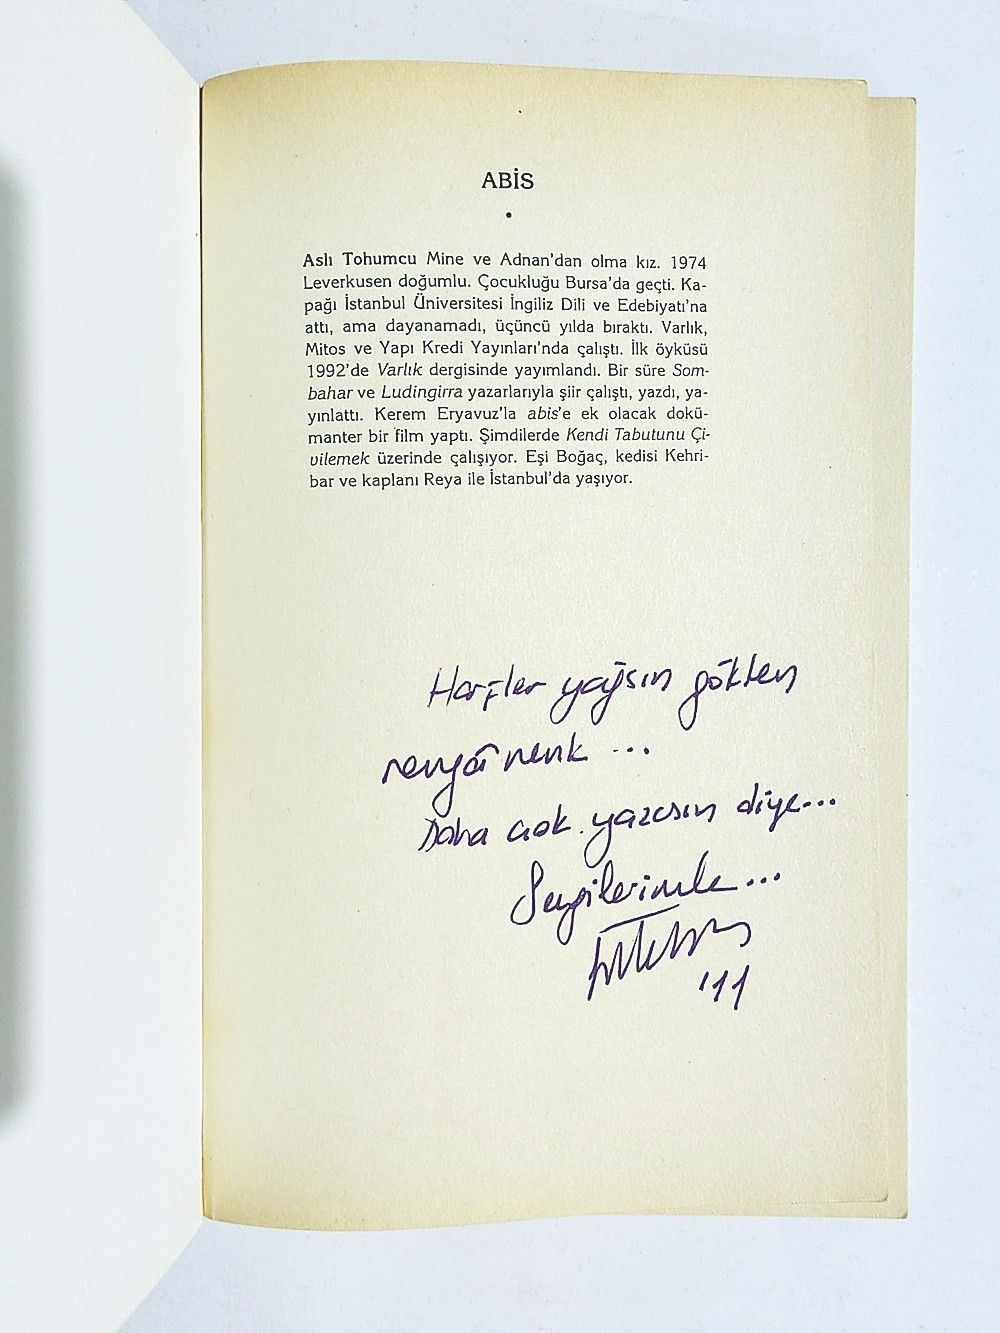 ABİS
•
Aslı Tohumcu Mine ve Adnan'dan olma kız. 1974
Leverkusen doğumlu. Çocukluğu Bursa'da geçti. Ka-
pağı İstanbul Üniversitesi İngiliz Dili ve Edebiyatı'na
attı, ama dayanamadı, üçüncü yılda bıraktı. Varlık,
Mitos ve Yapı Kredi Yayınları'nda çalıştı. İlk öyküsü
1992'de Varlık dergisinde yayımlandı. Bir süre Som-
bahar ve Ludingirra yazarlarıyla şiir çalıştı, yazdı, ya-
yınlattı. Kerem Eryavuz'la abis'e ek olacak dokü-
manter bir film yaptı. Şimdilerde Kendi Tabutunu Çi-
vilemek üzerinde çalışıyor. Eşi Boğaç, kedisi Kehri-
bar ve kaplanı Reya ile İstanbul'da yaşıyor.
Harfler yağsın gökten
rengârenk ...
Daha çok yazasın diye...
Sevgilerimle...
'11